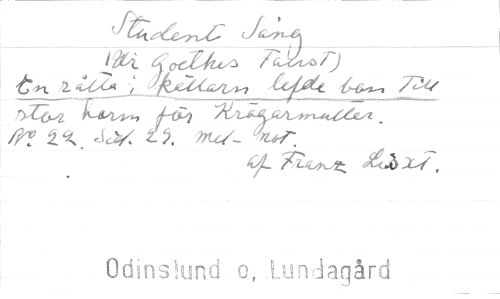 Student Sång
(Ur Goethes Faust)
En råtta i källarn lefde ban Till
stor harm för Krögarmutter.
No. 22. Sid. 29. mel- not.
af Franz Liszt.
Odinslund o, Lundagård